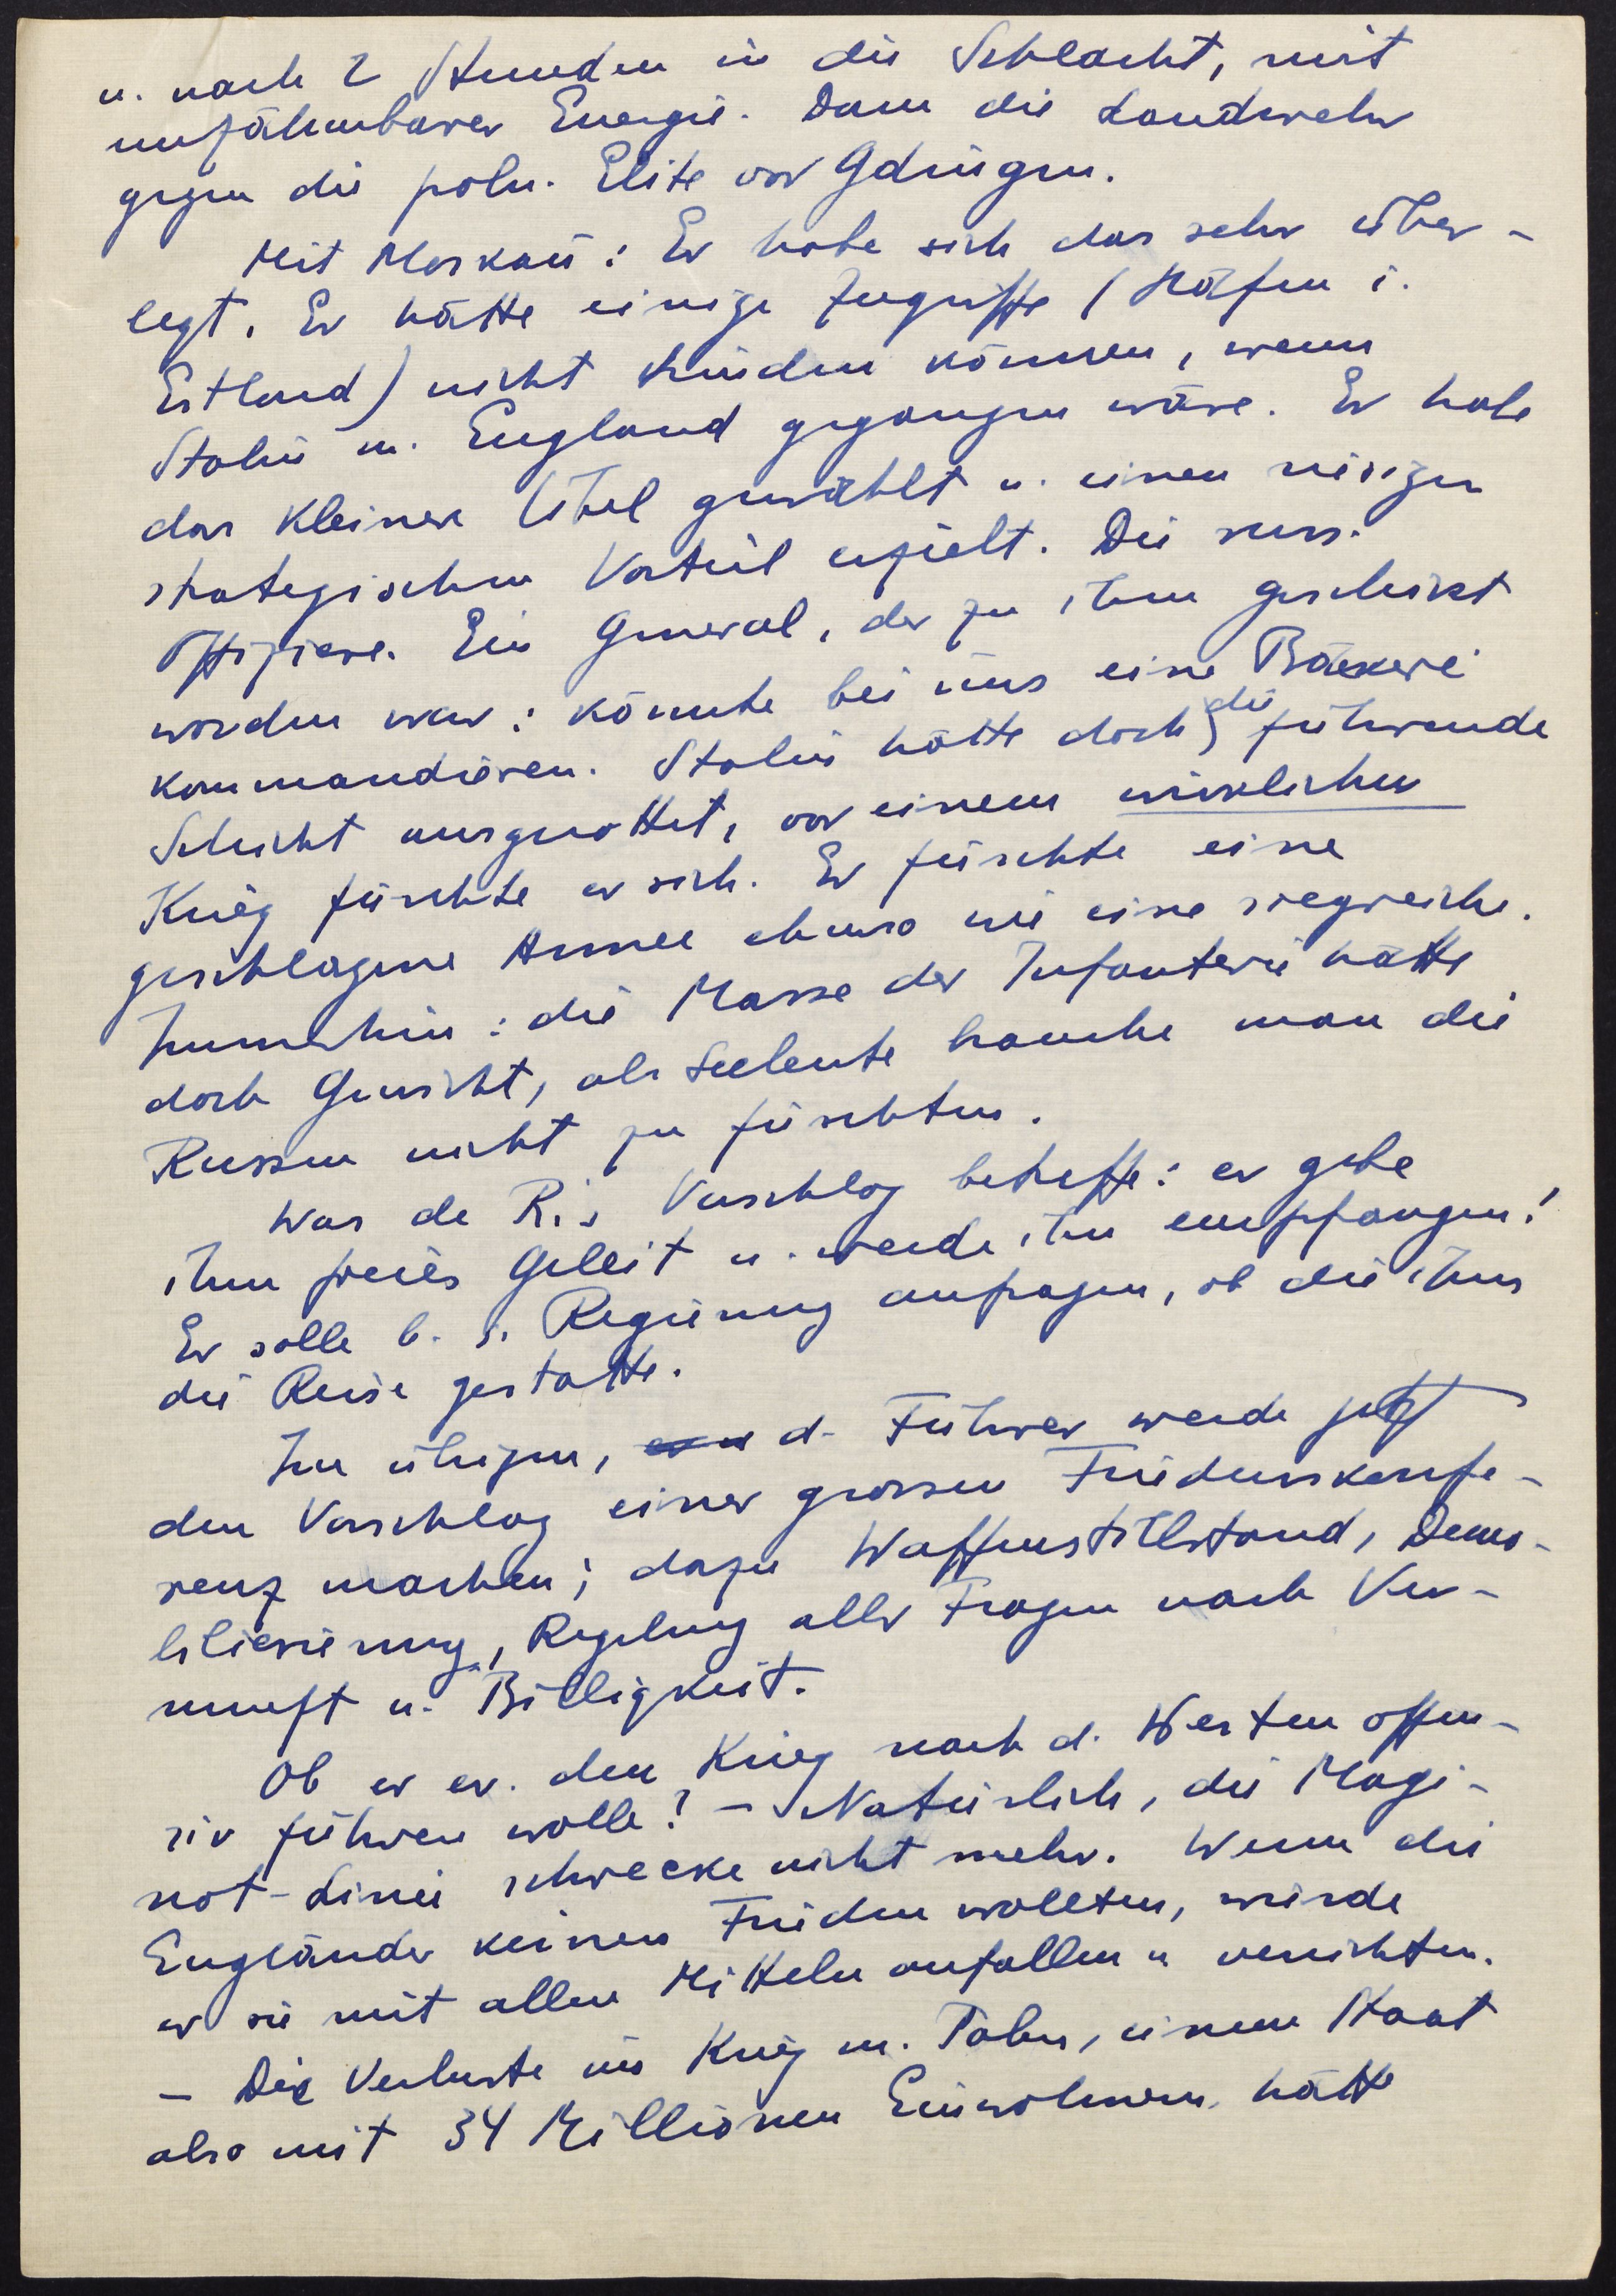 u. nach 2 Stunden in die Schlacht, mit
unzähmbarer Energie. Dann die Landwehr
gegen die poln. Elite vor Gdingen.
Mit Moskau: Er habe sich das sehr über-
legt. Er hätte einige Zugriffe (Häfen i.
Estland) nicht hindern können, wenn
Stalin m. England gegangen wäre. Er habe
das kleinere Übel gewählt u. einen riesigen
strategischen Vorteil erzielt. Die russ.
Offiziere. Ein General, der zu ihm geschickt
worden war: könnte bei uns eine Bäckerei
kommandieren. Stalin hätte doch die führende
Schicht ausgerottet, vor einem wirklichen
Krieg fürchte er sich. Er fürchte eine
geschlagene Armee ebenso wie eine siegreiche.
Immerhin: die Masse der Infanterie hätte
doch Gewicht, als Seeleute brauche man die
Russen nicht zu fürchten.
Was de R.'s Vorschlag betreffe: er gebe
ihm freies Geleit u. werde ihn empfangen!
Er solle b. s. Regierung anfragen, ob die ihm
die Reise gestatte.
Im übrigen, d. Führer werde jetzt
den Vorschlag einer grossen Friedenskonfe-
renz machen; dazu Waffenstillstand, Demo-
bilisierung, Regelung aller Fragen nach Ver-
nunft u. Billigkeit.
Ob er ev. den Krieg nach d. Westen offen-
siv führen wolle? - Natürlich, die Magi-
not-Linie schrecke nicht mehr. Wenn die
Engländer keinen Frieden wollten, würde
er sie mit allen Mitteln anfallen u vernichten.
- Die Verluste im Krieg m. Polen, einem Staat
also mit 34 Millionen Einwohnern, hätte